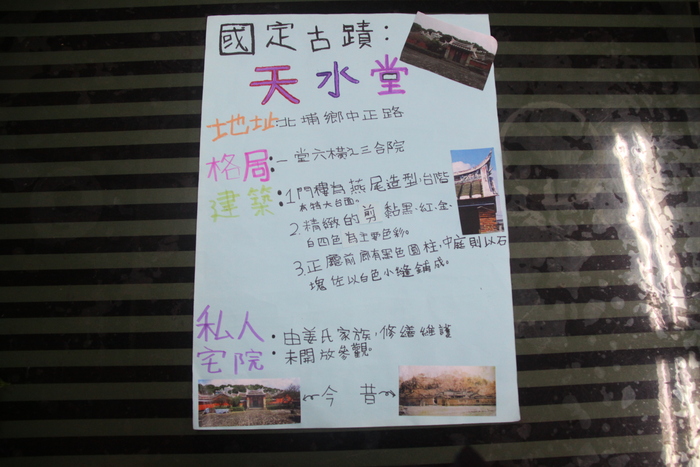 國定古蹟：
天水堂
地址：北埔鄉中正路
格局：一堂六橫之三合院
建築：1.門樓為燕尾造型，台階
大特大台面。
2.精緻的剪黏黑、紅、金、
白四色為主要色彩。
3.正廳前廊有黑色圓柱，中庭則以石
塊佐以白色小縫鋪成。
私人宅院：由姜氏家族，修繕維護
未開放參觀。
今 昔